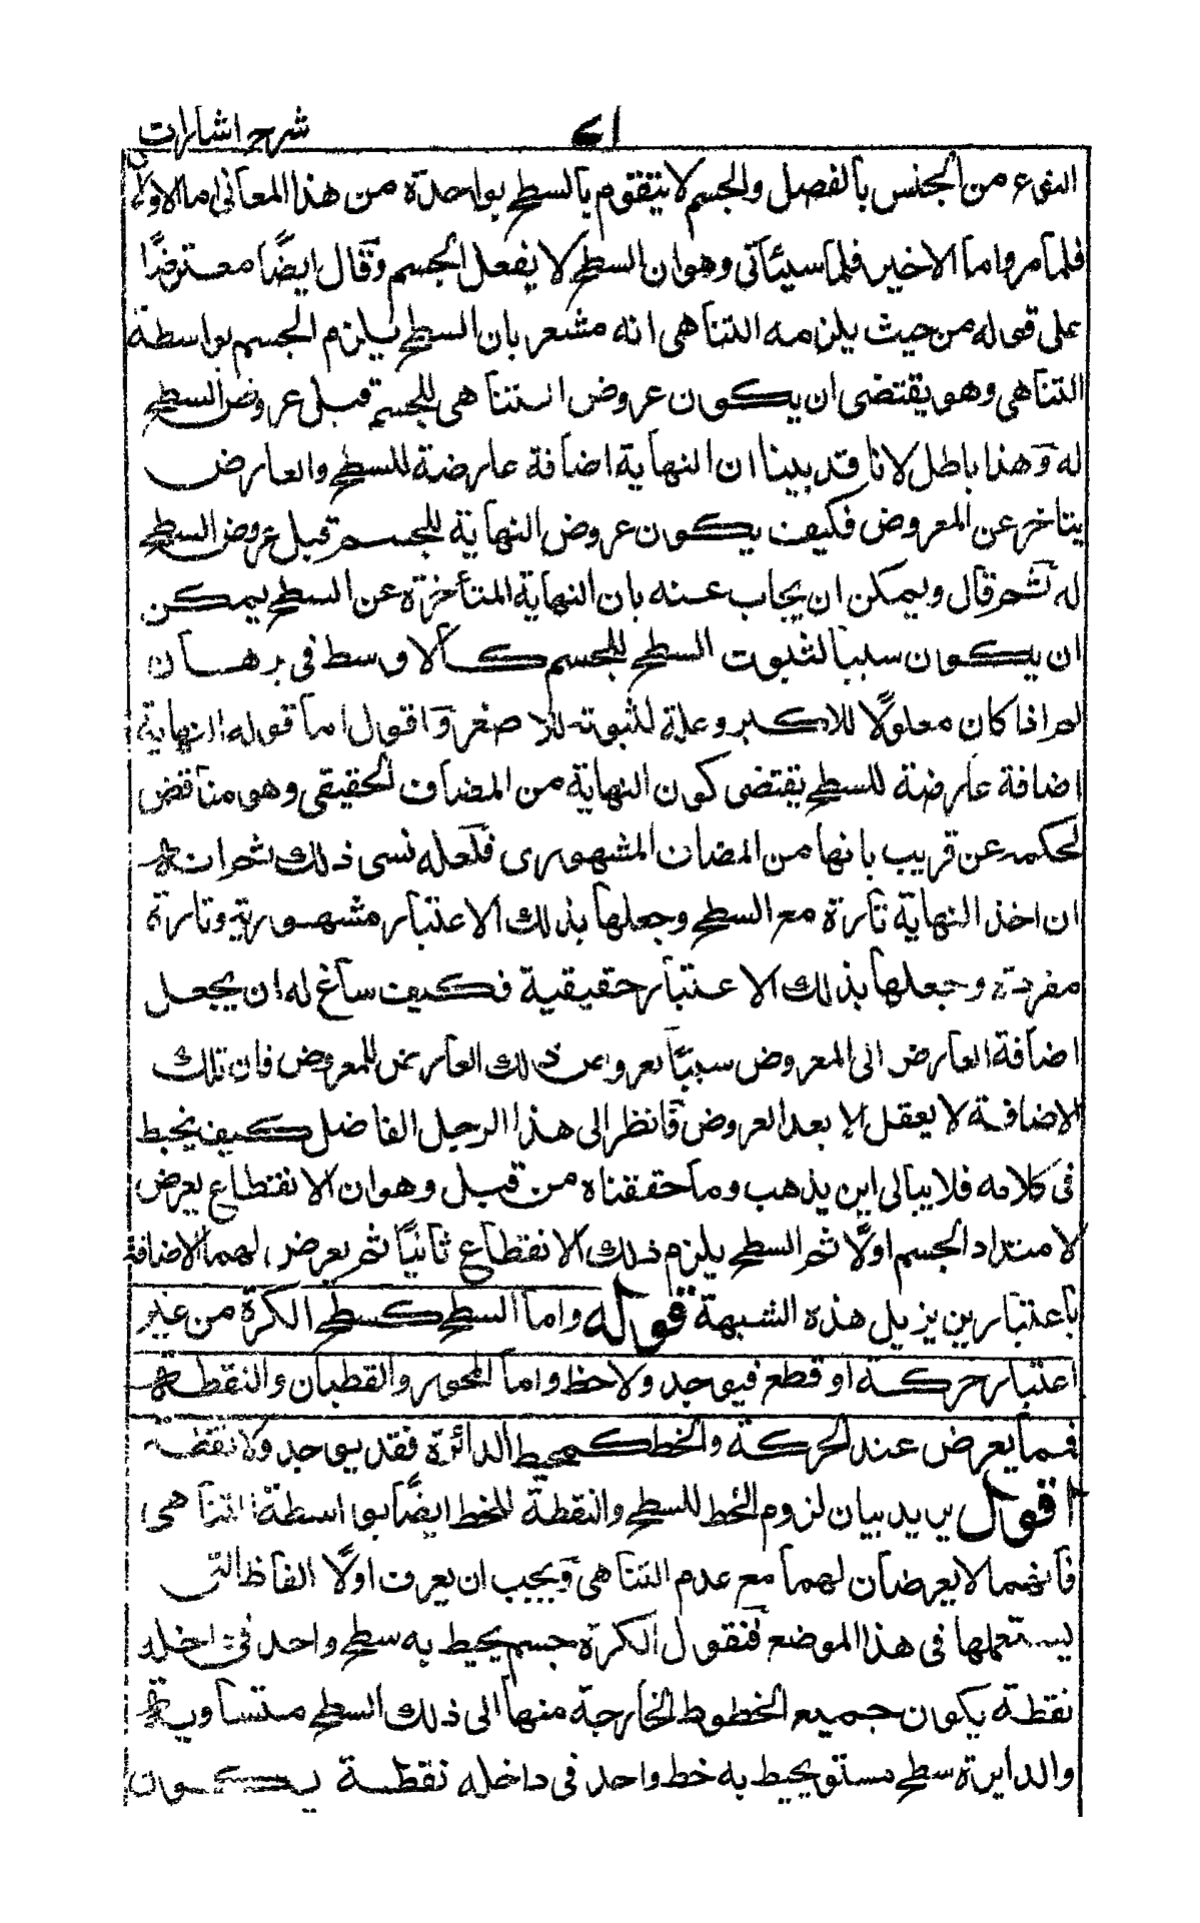 شرح اشارات
النوع من الجنس بالفصل والجسم لا يتقوم بالسطح بواحدة من هذا المعانى اما الاولان
فلما مر واما الاخير فلما سيئاتى وهو ان السطح لا يفعل الجسم وقال ايضًا معترضًا
على قوله من حيث يلزمه التناهى انه مشعر بان السطح يلزم الجسم بواسطة
التناهى وهو يقتضى ان يكون عروض التناهى للجسم قبل عروض السطح
له وهذا باطل لانا قد بينا ان النهاية اضافة عارضة للسطح والعارض
يتاخر عن المعروض فكيف يكون عروض النهاية للجسم قبل عروض السطح
له ثم قال ويمكن ان يجاب عنه بان النهاية المتأخرة عن السطح يمكن
ان يكون سببا لثبوت السطح للجسم كالاوسط فى برهان
لم اذا كان معلولًا للاكبر وعلة لثبوته للاصغر واقول اما قوله النهاية
اضافة عارضة للسطح يقتضى كون النهاية من المضاف الحقيقى وهو مناقض
لحكمه عن قريب بانها من المضاف المشهورى فلعله نسى ذلك ثم انه
ان اخذ النهاية تارة مع السطح وجعلها بذلك الاعتبار مشهورية وتارة
مفردة وجعلها بذلك الاعتبار حقيقية فكيف ساغ له ان يجعل
اضافة العارض الى المعروض سببًا لعروض ذلك العارض للمعروض فان تلك
الاضافة لا يعقل الا بعد العروض فانظر الى هذا الرجل الفاضل كيف يخبط
فى كلامه فلا يبالى اين يذهب وما حققناه من قبل وهو ان الانقطاع يعرض
لامتداد الجسم اولًا ثم السطح يلزم ذلك الانقطاع ثانيًا ثم يعرض لهما الاضافة
باعتبارين يزيل هذه الشبهة قوله واما السطح كسطح الكرة من غير
اعتبار حركة او قطع فيوجد ولا خط واما المحور والقطبان والنقطة
فمما يعرض عند الحركة والخط كمحيط الدائرة فقد يوجد ولا نقطة
اقول يريد بيان لزوم الخط للسطح والنقطة للخط ايضًا بواسطة التناهى
فانهما لا يعرضان لهما مع عدم التناهى ويجب ان يعرف اولًا الفاظ التى
يستعملها فى هذا الموضع فنقول الكرة جسم يحيط به سطح واحد فى داخله
نقطة يكون جميع الخطوط الخارجة منها الى ذلك السطح متساوية
والدايرة سطح مستو يحيط به خط واحد فى داخله نقطة يكون